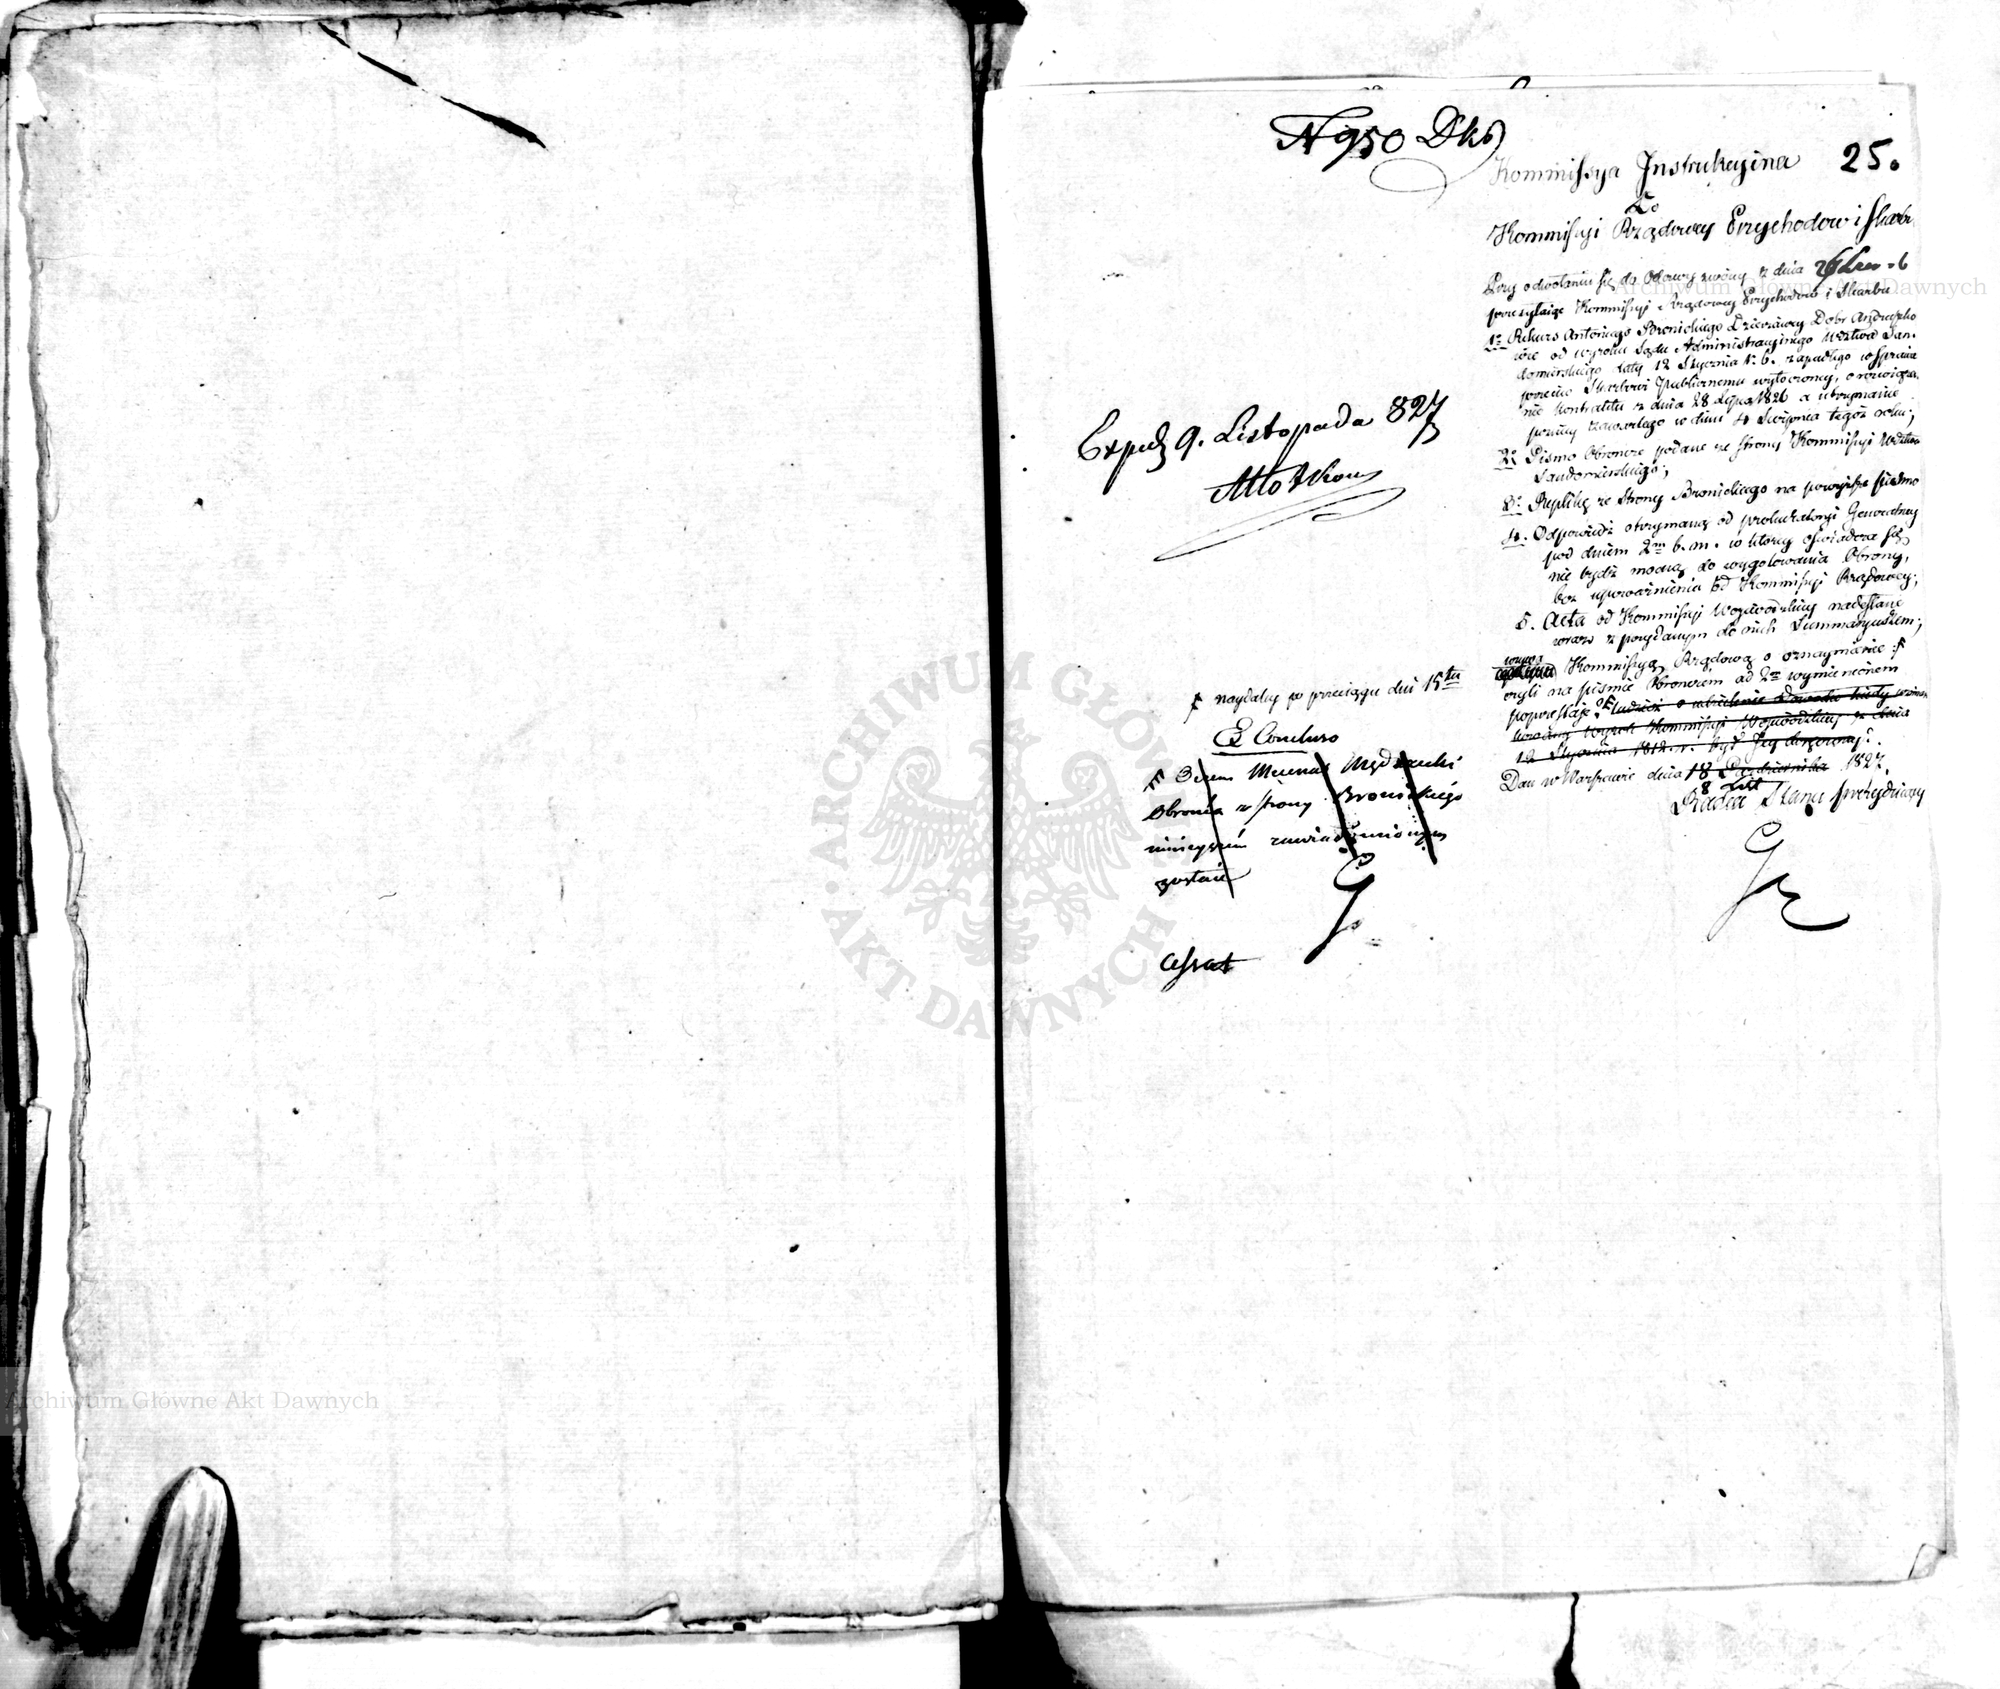 N 950 Dks
25.
Kommissya Instrukcyina
Do
Kommissyi Rządowey Przychodow i Skarbu
Przy odwołaniu się do Odezwy z dnia 26
przesyłaiąc Kommissyi Rządowey Przychodów i Skarbu
1o Rekurs Antoniego Bronickiego Dzierżawcy Dobr
od wyroku Sądu Administracyinego Wdztwa San-
domirskiego daty 12 Stycznia r. b. zapadłego w sprawie
przeciw Skarbowi Publicznemu wytoczoney, o rozwiąza-
nie Kontraktu z dnia 28 Lipca 1826 a utrzymanie
zawartego w dniu 4 Sierpnia tegoż roku;
2o Pismo Obroncze podane ze strony Kommissyi Wdztwa
Sandomirskiego;
3o Replikę ze strony Bronickiego na powyższe pismo
4. Odpowiedź otrzymaną od prokuratoryi Generalney
pod dniem 2m b. m. w ktorey oświadcza się
nie bydź mocną do wygotowania Obrony,
bez upoważnienia od Kommissyi Rządowey;
5. Acta od Kommissyi Woiewodzkiey nadesłane
wraz z przydanym do nich Summaryuszem;
wzywa
Kommissyą Rządową o oznaymienie
czyli na piśmie Obronczem ad 2m wymienionem
poprzestaie, tudzież o udzielenie Dowodu kiedy
wyrok Kommissyi Woiewodzkiey z dnia
12 Stycznia 1812 r. był Jey doręczony?
Dan w Warszawie dnia 18 Października 1827.
8 List
Radca Stanu Prezyduiący
Exped 9. Listopada 827
naydaley w przeciągu dni 15tu
Ex Concluso
Mecenas
Obrońca ze strony Bronickiego
ninieyszém zawiadomionym
zostaie
G
cessat
Archiwum Główne Akt Dawnych
Archiwum Główne Akt Dawnych
ARCHIWUM GŁÓWNE
AKT DAWNYCH